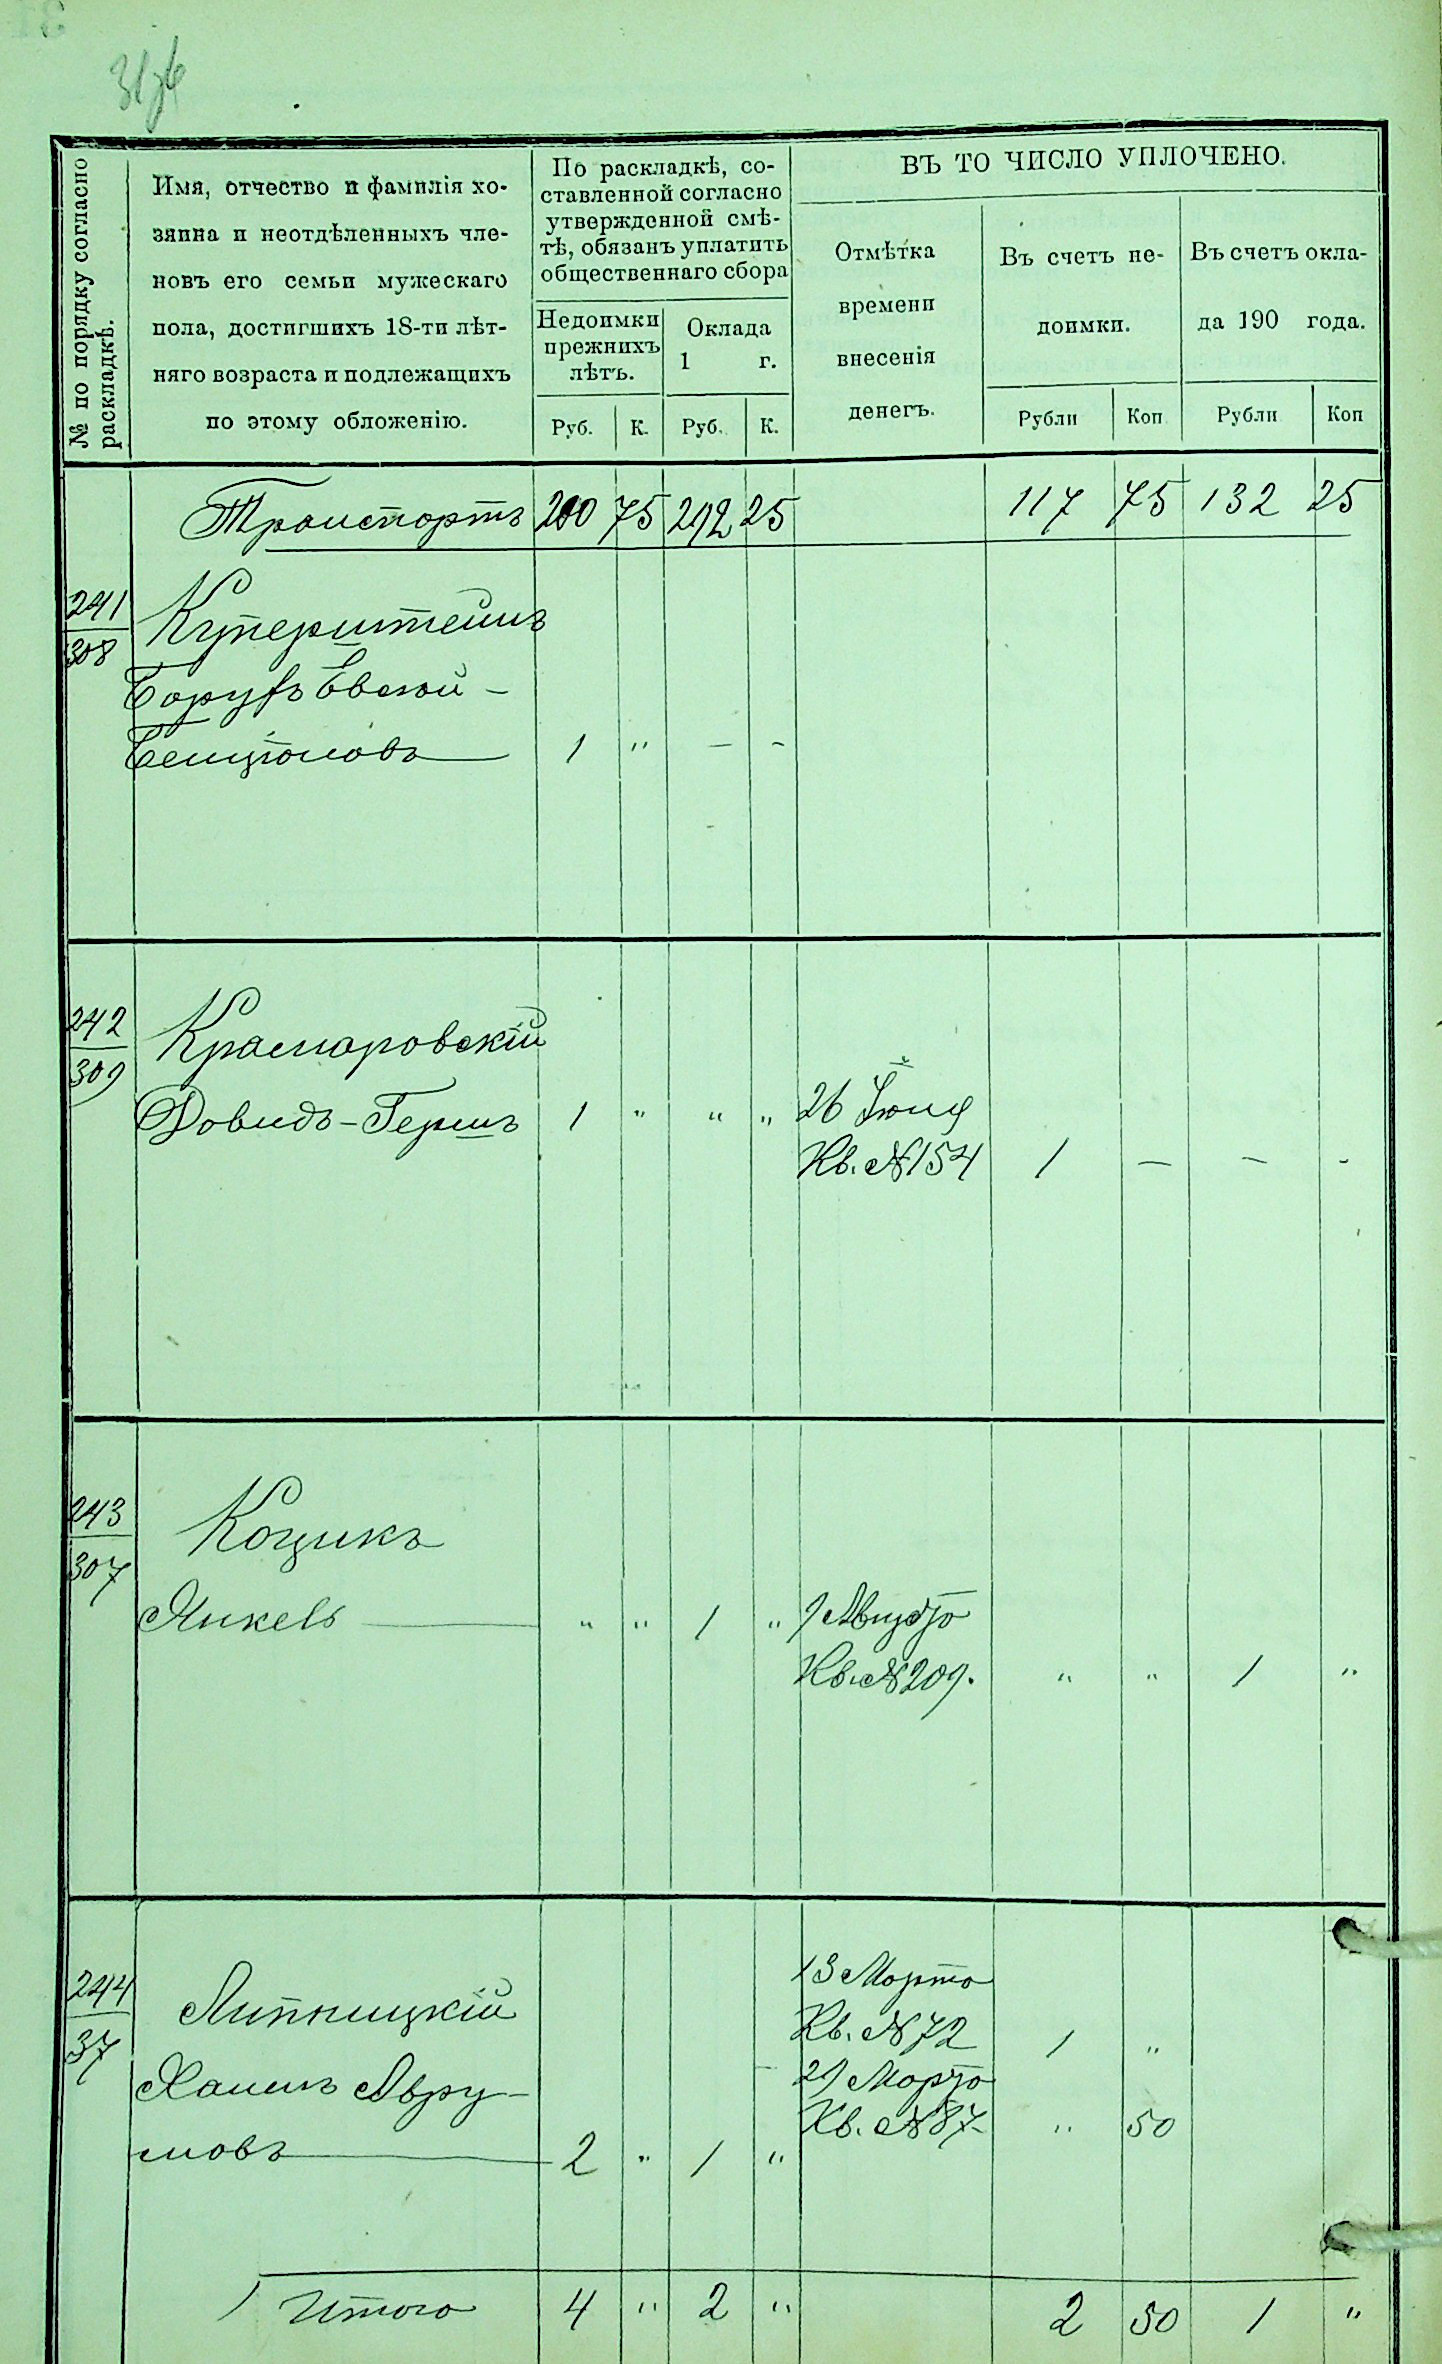 № по порядку согласно раскладкѣ.
Имя, отчество и фамилія хо-
зяина и неотдѣленныхъ чле-
новъ его семьи мужескаго
пола, достигшихъ 18-ти лѣт-
няго возраста и подлежащихъ
по этому обложенію.
По раскладкѣ, со-
ставленной согласно
утвержденной смѣ-
тѣ, обязанъ уплатить
общественнаго сбора
Недоимки
прежнихъ
лѣтъ.
Оклада
1 г.
Руб. К. Руб. К.
ВЪ ТО ЧИСЛО УПЛОЧЕНО.
Отмѣтка
времени
внесенія
денегъ.
Въ счетъ не-
доимки.
Въ счетъ окла-
да 190 года.
Рубли Коп Рубли Коп
Транспортъ 200 75 292 25 117 75 132 25
241
308
Куперштейнъ
Борухъ Евсей-
Бенціоновъ 1 " - -
242
309
Крамаровскій
Довидъ-Гершъ 1 " " " 26 Іюня
Кв. №154 1 - - -
243
307
Коцикъ
Янкель " " 1 " 9 Августа
Кв. №209. " " 1 "
244
37
Липницкій
Хаимъ Авру-
мовъ 2 " 1 "
13 Марта
Кв. №72 1 "
29 Марта
Кв. №87 " 50
Итого 4 " 2 " 2 50 1 "